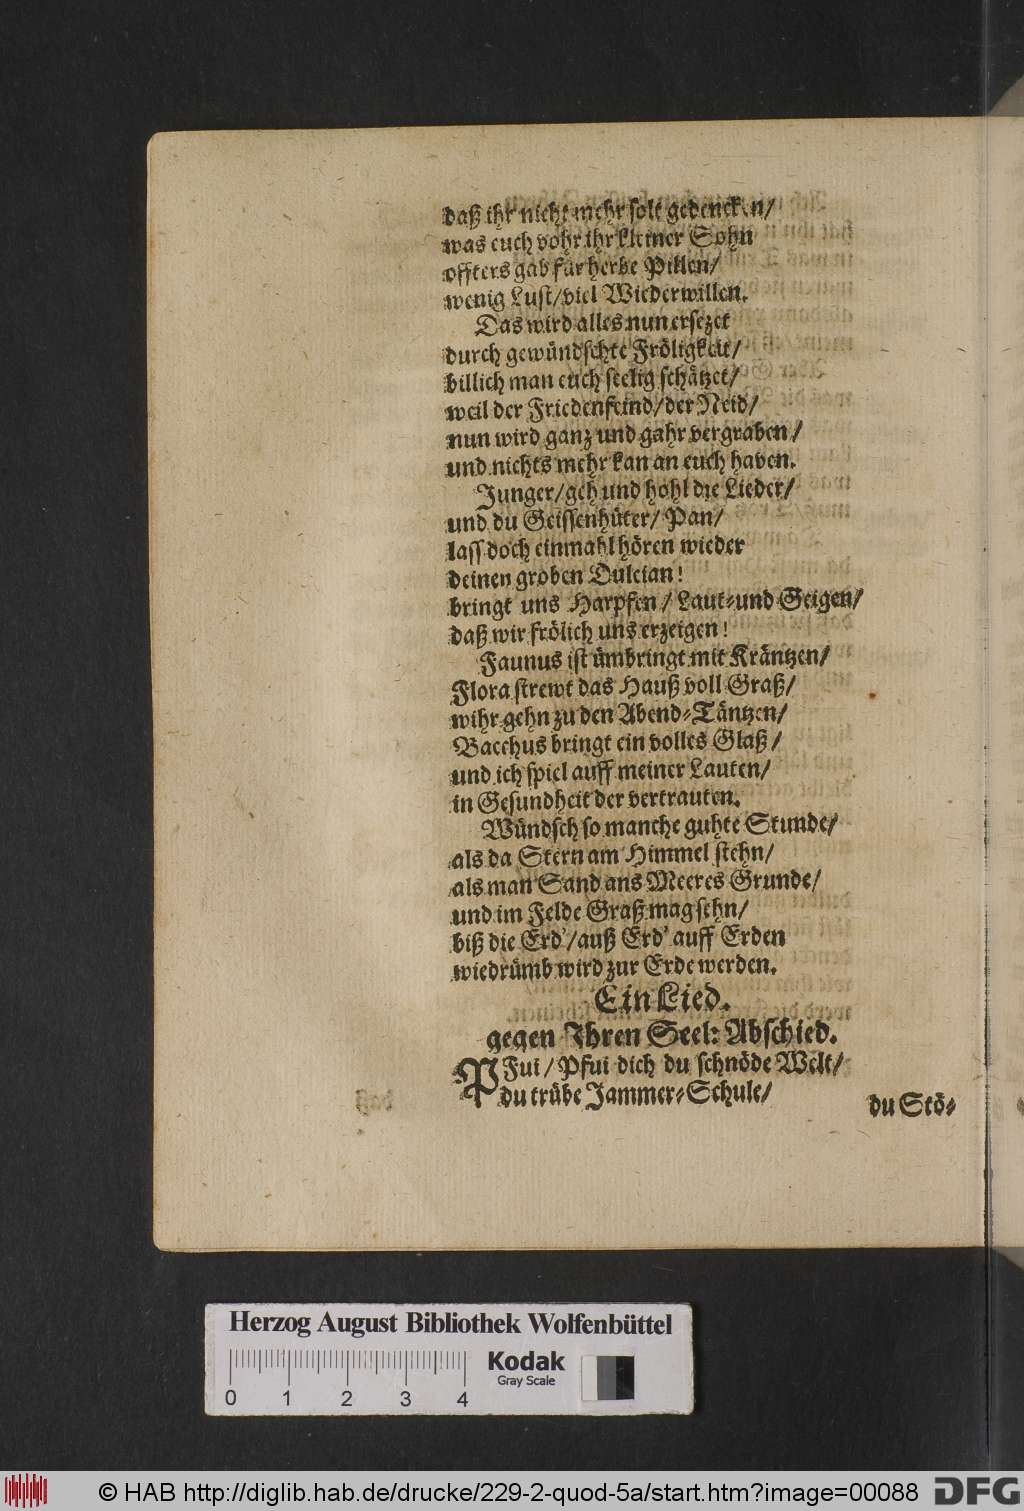 daß ihr nicht mehr solt gedencken/
was euch vohr ihr kleiner Sohn
offters gab fur herbe Pillen/
wenig Lust/viel Wiederwillen.
Das wird alles nun ersezet
durch gewündschte Fröligkeit/
billich man euch seelig schätzet/
weil der Friedenfeind/der Neid/
nun wird ganz und gahr vergraben/
und nichts mehr kan an euch haben.
Junger/geh und hohl die Lieder/
und du Geissenhüter/Pan/
lass doch einmahl hören wieder
deinen groben Dulcian!
bringt uns Harpfen/Laut-und Geigen/
daß wir frölich uns erzeigen!
Faunus ist ümbringt mit Kräntzen/
Flora strewt das Hauß voll Graß/
wihr gehn zu den Abend-Täntzen/
Bacchus bringt ein volles Glaß/
und ich spiel auff meiner Lauten/
in Gesundheit der vertrauten.
Wündsch so manche guhte Stunde/
als da Stern am Himmel stehn/
als man Sand ans Meeres Grunde/
und im Felde Graß mag sehn/
biß die Erd'/auß Erd' auff Erden
wiedrümb wird zur Erde werden.
Ein Lied.
gegen Ihren Seel: Abschied.
PFui/Pfui dich du schnöde Welt/
du trübe Jammer-Schule/
du Stö-
Herzog August Bibliothek Wolfenbüttel
Kodak
Gray Scale
0 1 2 3 4
© HAB http://diglib.hab.de/drucke/229-2-quod-5a/start.htm?image=00088
DFG